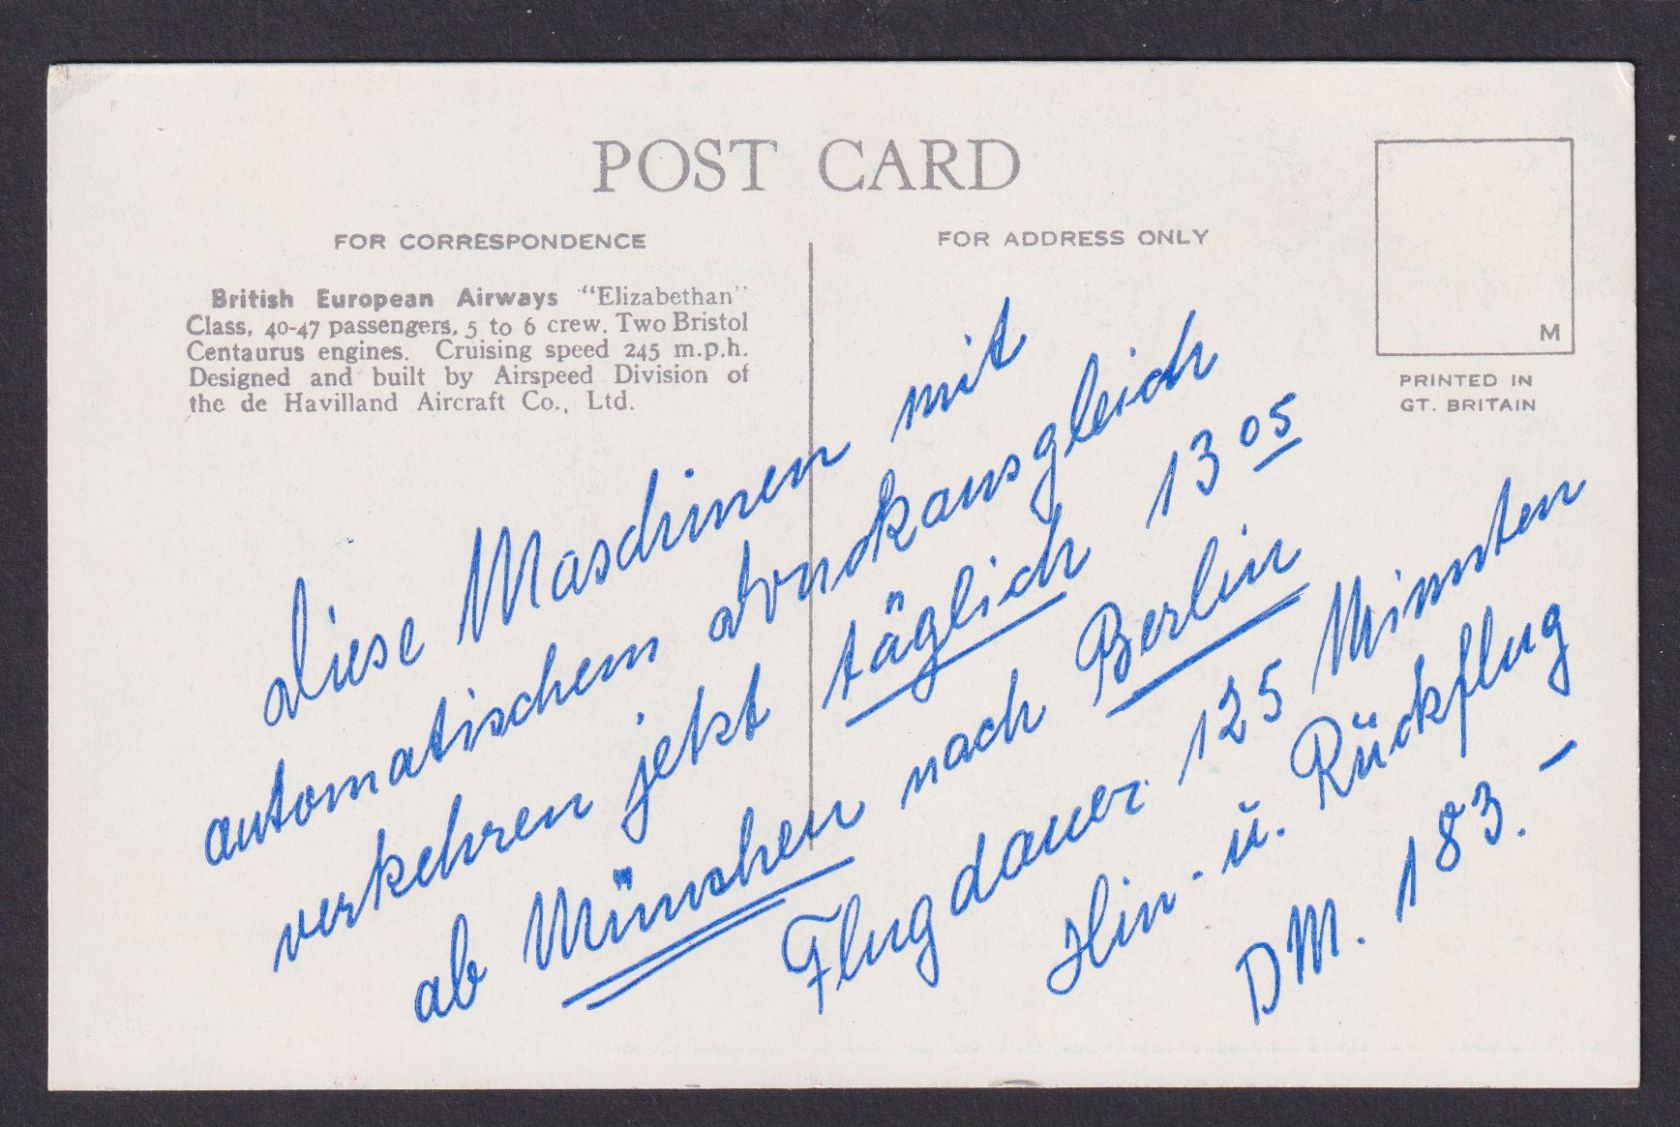 POST CARD
FOR CORRESPONDENCE
FOR ADDRESS ONLY
British European Airways "Elizabethan"
Class, 40-47 passengers, 5 to 6 crew. Two Bristol
Centaurus engines. Cruising speed 245 m.p.h.
Designed and built by Airspeed Division of
the de Havilland Aircraft Co., Ltd.
M
PRINTED IN
GT. BRITAIN
Diese Maschinen mit
automatischem Druckausgleich
verkehren jetzt täglich 13 05
ab München nach Berlin
Flugdauer 125 Minuten
Hin- u. Rückflug
DM. 183. –